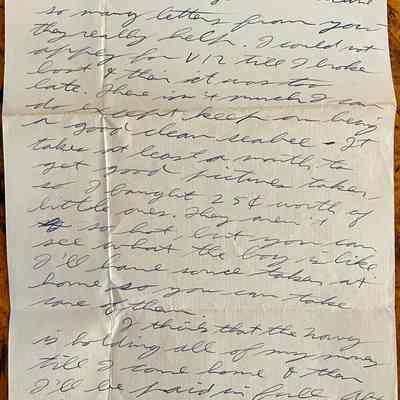 so many letters from you
they really help. I could not
apply for V12 till I broke
boot & then it was too
late. There isn't much I can
do except keep on being
a good clean seabee. It
takes at least a month to
get good pictures taken,
so I bought 25¢ worth of
little ones. They aren't
so hot but you can
see what the boy is like.
I'll have some taken at
home so you can take
some of them.
I think that the Navy
is holding all of my money
till I come home & then
I'll be paid in full.